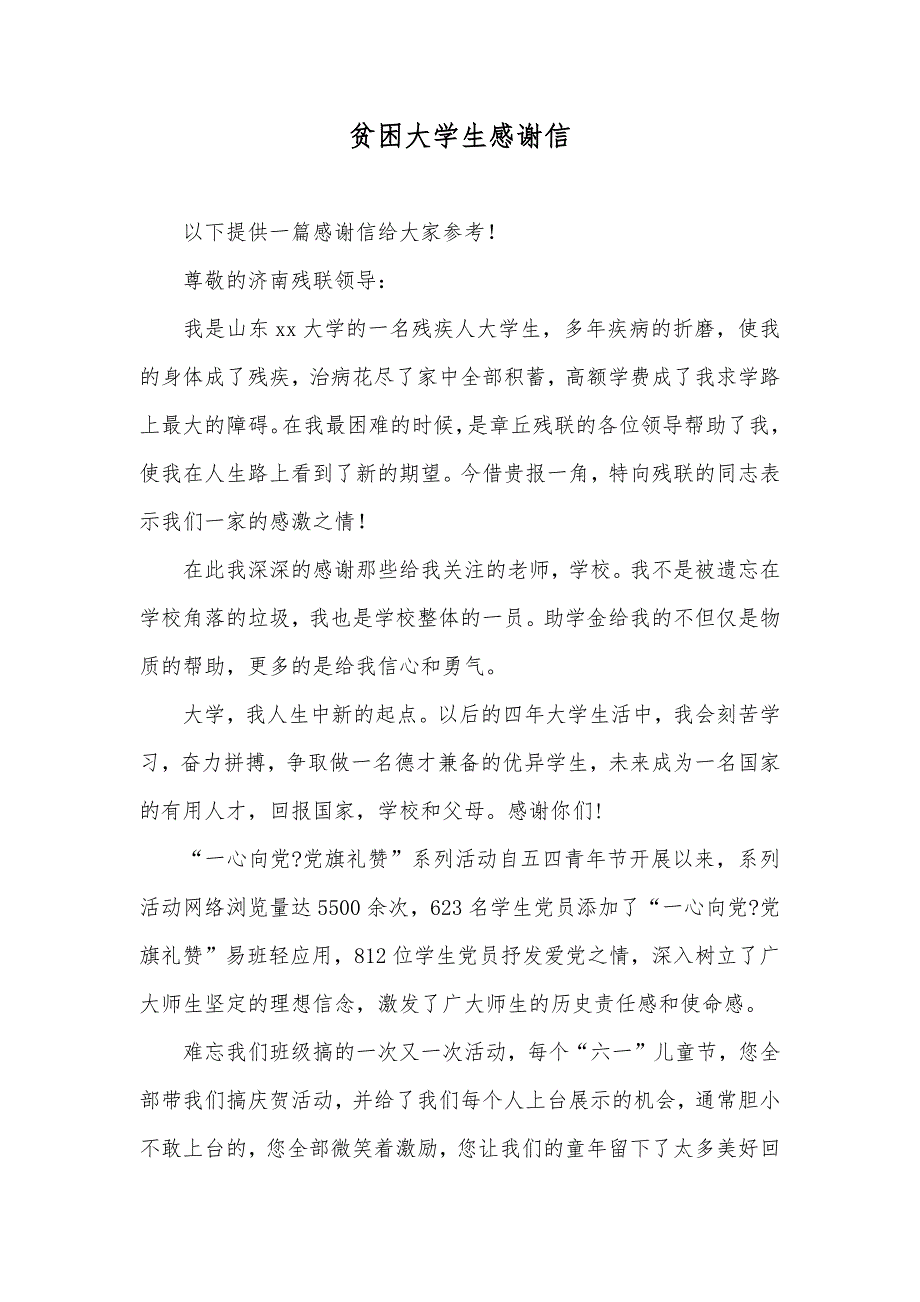 贫困大学生感谢信
以下提供一篇感谢信给大家参考！
尊敬的济南残联领导：
我是山东 xx 大学的一名残疾人大学生，多年疾病的折磨，使我
的身体成了残疾，治病花尽了家中全部积蓄，高额学费成了我求学路
上最大的障碍。在我最困难的时候，是章丘残联的各位领导帮助了我，
使我在人生路上看到了新的期望。今借贵报一角，特向残联的同志表
示我们一家的感激之情！
在此我深深的感谢那些给我关注的老师，学校。我不是被遗忘在
学校角落的垃圾，我也是学校整体的一员。助学金给我的不但仅是物
质的帮助，更多的是给我信心和勇气。
大学，我人生中新的起点。以后的四年大学生活中，我会刻苦学
习，奋力拼搏，争取做一名德才兼备的优异学生，未来成为一名国家
的有用人才，回报国家，学校和父母。感谢你们!
“一心向党?党旗礼赞”系列活动自五四青年节开展以来，系列
活动网络浏览量达 5500 余次，623 名学生党员添加了“一心向党?党
旗礼赞”易班轻应用，812 位学生党员抒发爱党之情，深入树立了广
大师生坚定的理想信念，激发了广大师生的历史责任感和使命感。
难忘我们班级搞的一次又一次活动，每个“六一”儿童节，您全
部带我们搞庆贺活动，并给了我们每个人上台展示的机会，通常胆小
不敢上台的，您全部微笑着激励，您让我们的童年留下了太多美好回